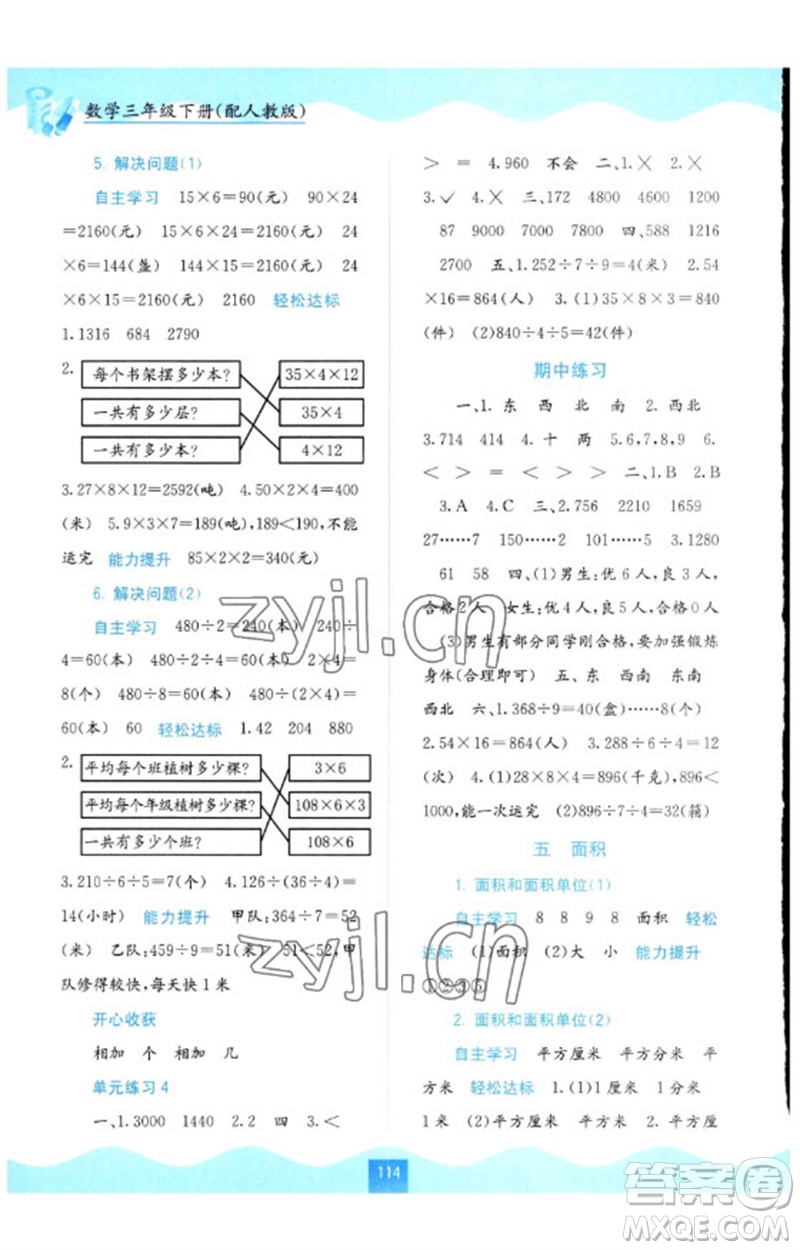 数学三年级下册(配人教版)
5. 解决问题(1)
自主学习 15×6=90(元) 90×24
=2160(元) 15×6×24=2160(元) 24
×6=144(盏) 144×15=2160(元) 24
×6×15=2160(元) 2160 轻松达标
1.1316 684 2790
2.
每个书架摆多少本? 35×4×12
一共有多少层? 35×4
一共有多少本? 4×12
3.27×8×12=2592(吨) 4.50×2×4=400
(米) 5.9×3×7=189(吨),189<190,不能
运完 能力提升 85×2×2=340(元)
6. 解决问题(2)
自主学习 480÷2=240(本) 240÷
4=60(本) 480÷2÷4=60(本) 2×4=
8(个) 480÷8=60(本) 480÷(2×4)=
60(本) 60 轻松达标 1.42 204 880
2.
平均每个班植树多少棵? 3×6
平均每个年级植树多少棵? 108×6×3
一共有多少个班? 108×6
3.210÷6÷5=7(个) 4.126÷(36÷4)=
14(小时) 能力提升 甲队:364÷7=52
(米) 乙队:459÷9=51(米) 51<52,甲
队修得较快,每天快1米
开心收获
相加 个 相加 几
单元练习4
一、1.3000 1440 2.2 四 3.<
> = < 4.960 不会 二、1.× 2.×
3.✓ 4.× 三、172 4800 4600 1200
87 9000 7000 7800 四、588 1216
2700 五、1.252÷7÷9=4(米) 2.54
×16=864(人) 3.(1)35×8×3=840
(件) (2)840÷4÷5=42(件)
期中练习
一、1. 东 西 北 南 2. 西北
3.714 414 4. 十 两 5.6,7,8,9 6.
< > = < > > 二、1.B 2.B
3.A 4.C 三、2.756 2210 1659
27……7 150……2 101……5 3.1280
61 58 四、(1)男生:优6人,良3人,
合格2人 女生:优10人,良1人,合格0人
(3)男生有部分同学刚合格,要加强锻炼
身体(合理即可) 五、东 西南 东南
西北 六、1.368÷9=40(盒)……8(个)
2.54×16=864(人) 3.288÷6÷4=12
(次) 4.(1)28×8×4=896(千克),896<
1000,能一次运完 (2)896÷7÷4=32(箱)
五 面积
1. 面积和面积单位(1)
自主学习 8 8 9 8 面积 轻松
达标 (1)面积 (2)大 小 能力提升
①②③⑤
2. 面积和面积单位(2)
自主学习 平方厘米 平方分米 平
方米 轻松达标 1.(1)1厘米 1分米
1米 (2)平方厘米 平方分米 2. 平方
114
zyjl.cn
zyjl.cn
答案圈
MXQE.COM